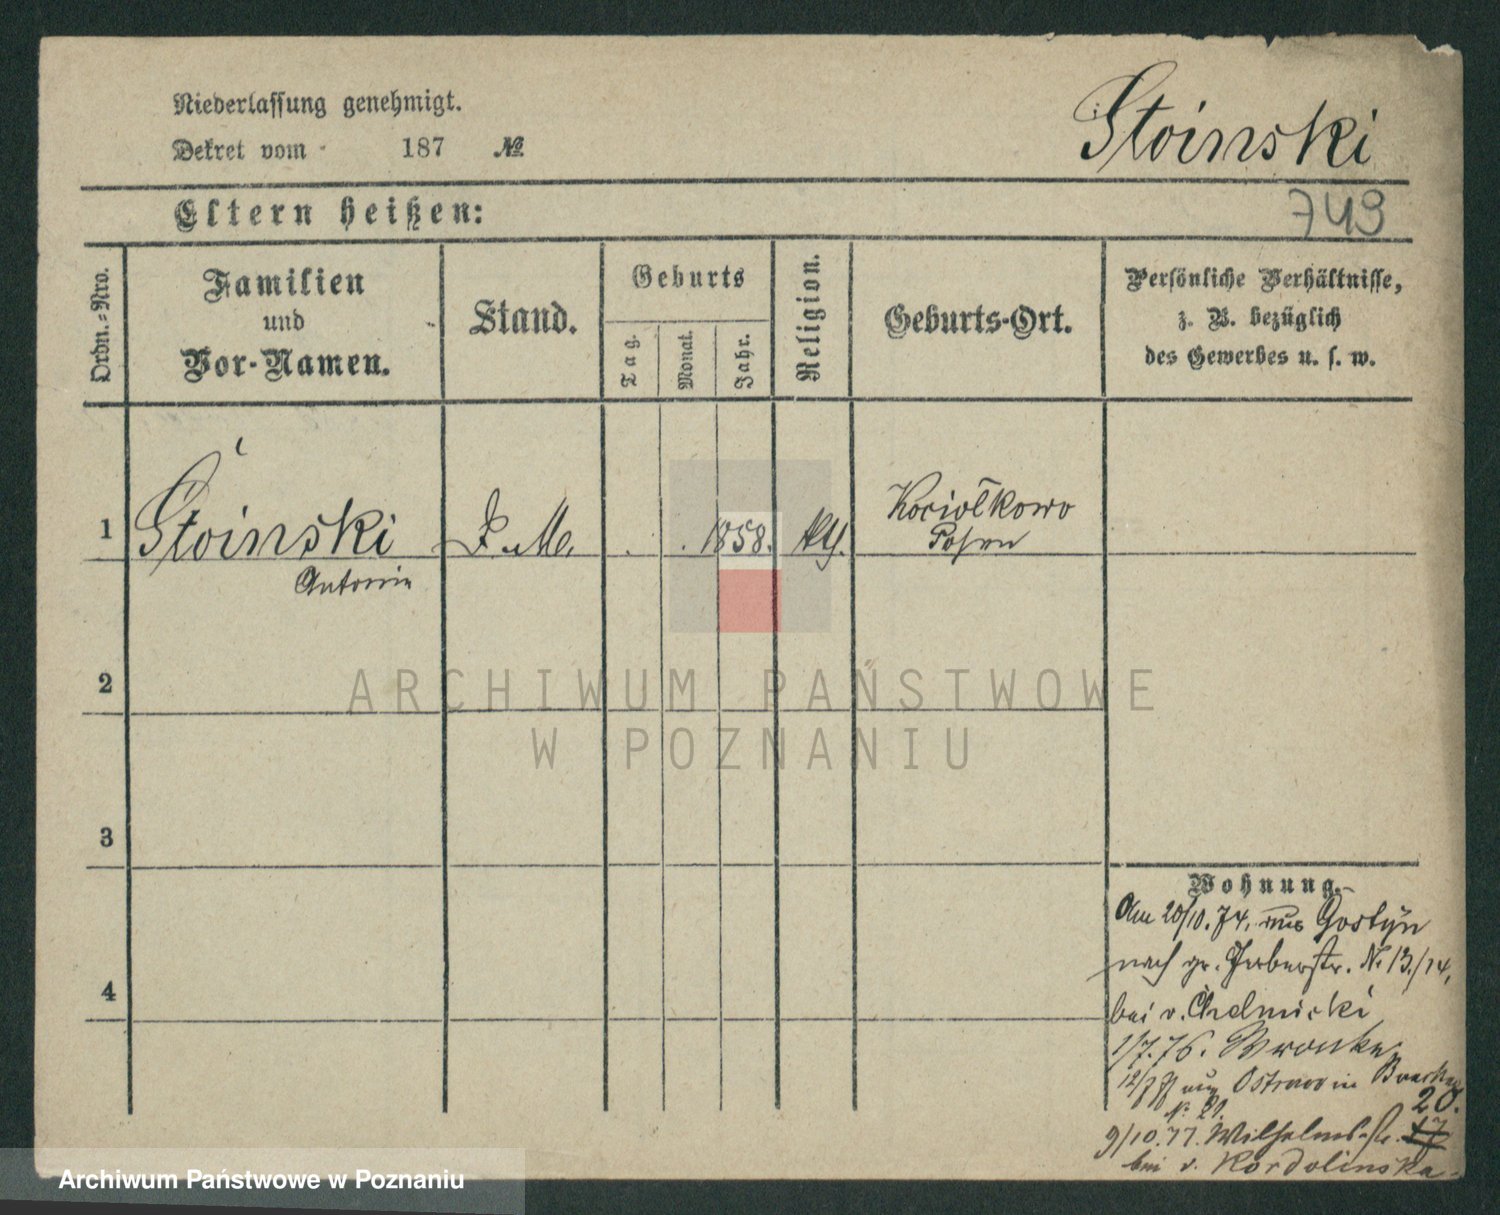 Niederlassung genehmigt.
Dekret vom 187 №
Stoinski
Eltern heißen:
749
Ordn.-Nro.
Familien
und
Vor-Namen.
Stand.
Geburts
Tag.
Monat.
Jahr.
Religion.
Geburts-Ort.
Persönliche Verhältnisse,
z. B. bezüglich
des Gewerbes u. s. w.
1
Stoinski
Antonie
D. M.
1858.
kth.
Kociołkowo
Posen
2
ARCHIWUM PAŃSTWOWE
W POZNANIU
3
4
Wohnung.
Am 20/10. 74. aus Gostyn
nach gr. Gerberstr. N. 13./14,
bei v. Chelmicki
1/7. 76. Wronke
12/7 77 aus Ostrowo in
N. 21.
20.
9/10. 77. Wilhelmsstr. 17
bei v. Kordolinska
Archiwum Państwowe w Poznaniu